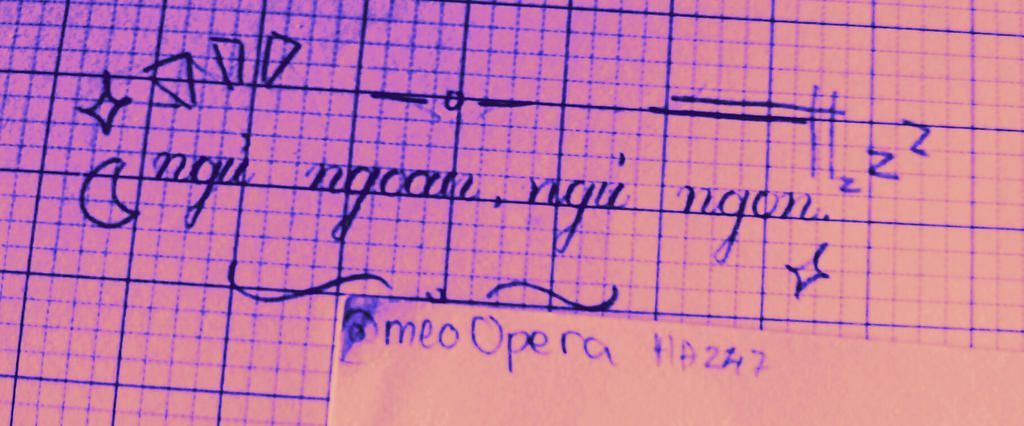 z z z
ngủ ngoan, ngủ ngon.
@meoOpera HA247